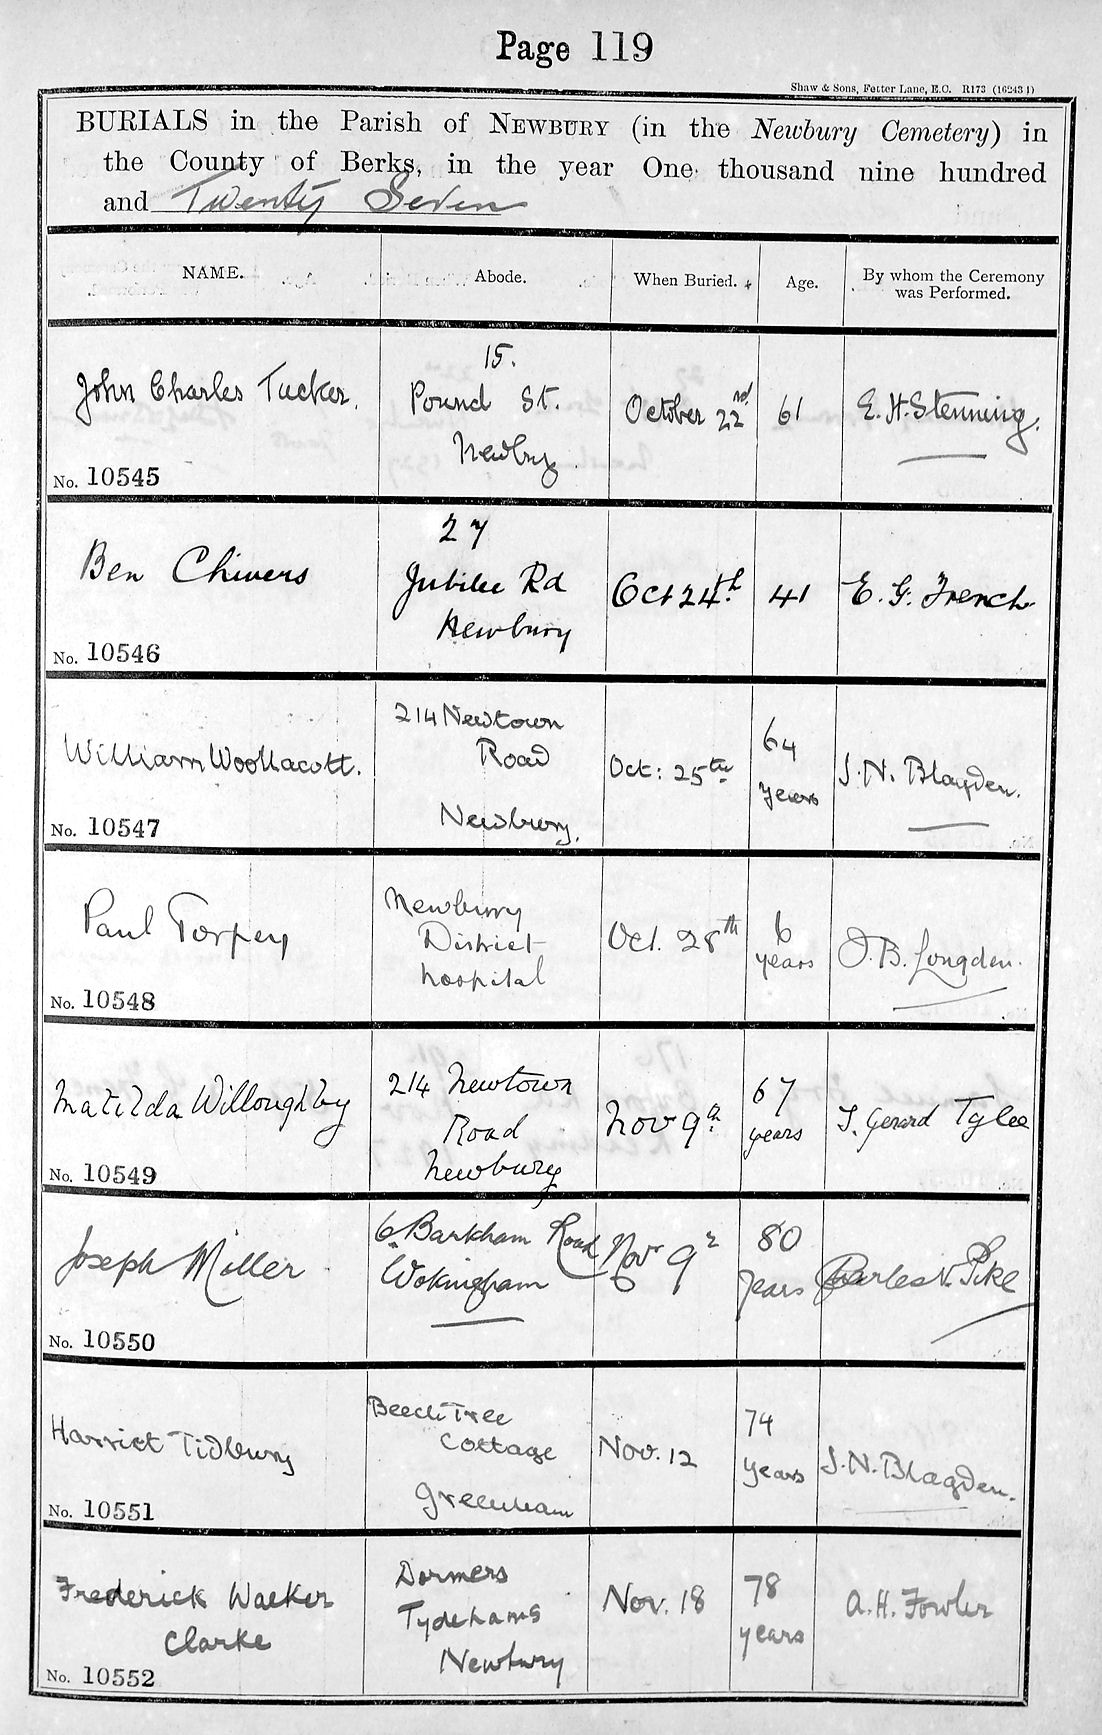 Page 119
Shaw & Sons, Fetter Lane, E.C. R173 (16243 1)
BURIALS in the Parish of NEWBURY (in the Newbury Cemetery) in
the County of Berks, in the year One thousand nine hundred
and Twenty Seven
NAME. Abode. When Buried. Age. By whom the Ceremony
was Performed.
15.
John Charles Tucker. Pound St. October 22nd 61 E. H. Stenning.
Newbry
No. 10545
27
Ben Chivers Jubilee Rd Oct 24th 41 E. G. French
Newbury
No. 10546
214 Newtown 64
William Woollacott. Road Oct: 25th years J. N. Blagden.
Newbury.
No. 10547
Newbury
Paul Torpey District Oct. 28th 6 J. B. Longden.
hospital years
No. 10548
214 Newtown 67
Matilda Willoughby Road Nov 9th years J. Gerard Tylee
Newbury
No. 10549
6 Barkham Road 80
Joseph Miller Wokingham Nov 9 years Charles V. Pike
No. 10550
Beech Tree 74
Harriet Tidbury Cottage Nov. 12 years J. N. Blagden.
Greenham
No. 10551
Dormers 78
Frederick Walker Tydehams Nov. 18 years A. H. Fowler
Clarke Newbury
No. 10552